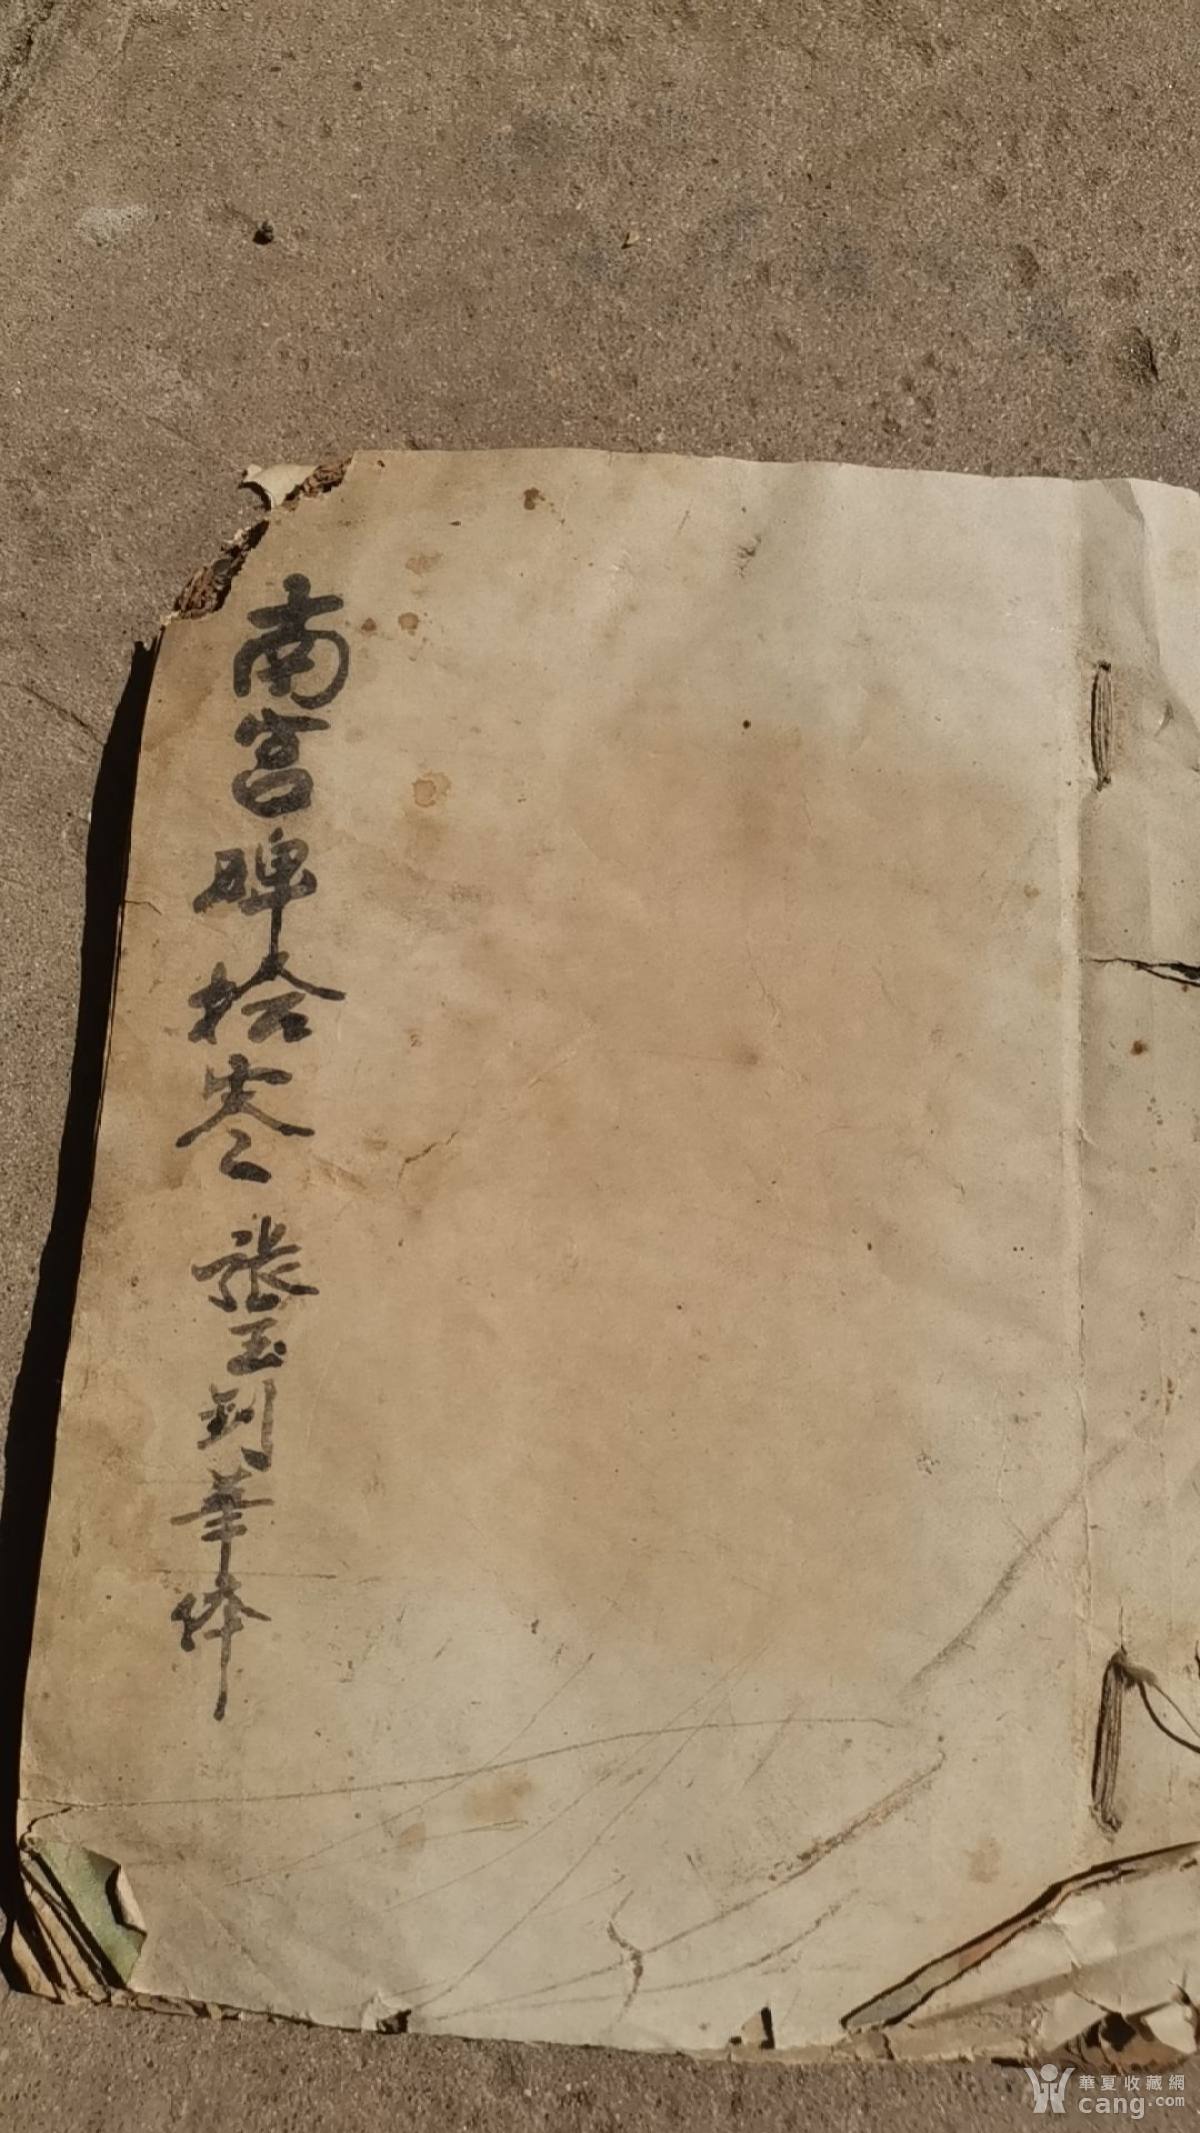 南宫碑拾零 张玉到華俸
華夏收藏網
cang.com